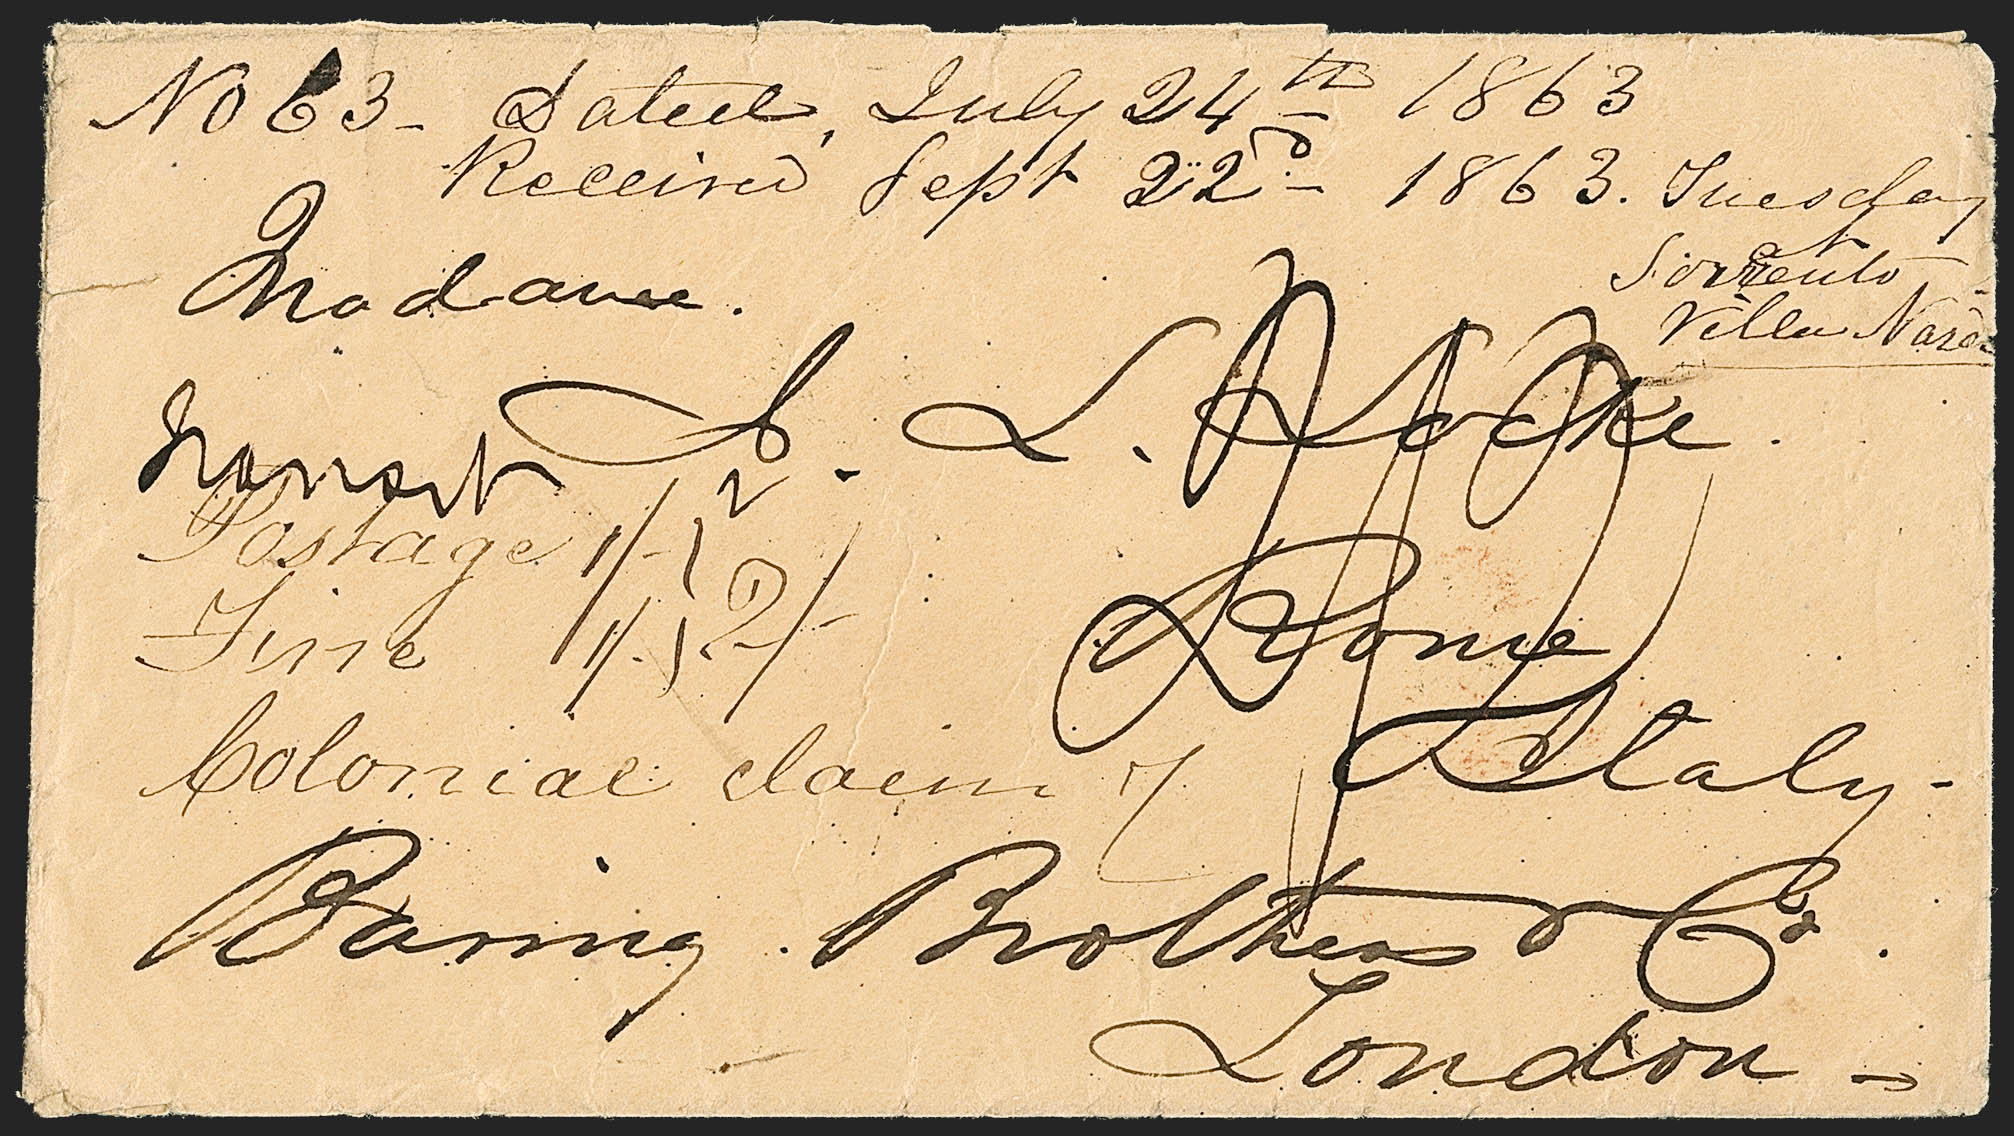 No 63 - Dated, July 24th 1863
Received Sept 22d 1863. Tuesday
at
Sorrento -
Villa
Madame.
S. L.
Postage 1/- 2/-
Fine 1/-
Rome
Colonial claim
Italy -
Baring Brothers & Co.
London -